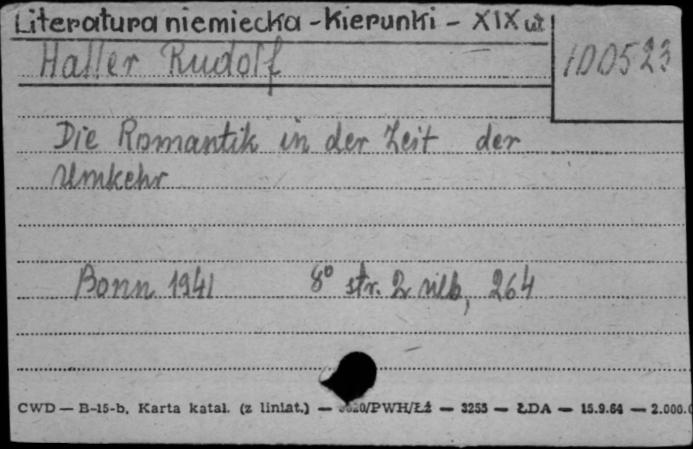 Literatura niemiecka - Kierunki - XIX w
Haller Rudolf
100523
Die Romantik in der Zeit der
Umkehr
Bonn 1941 8° str. 2 nlb, 264
CWD — B-15-b, Karta katal. (z liniat.) — 3620/PWH/Łż — 3255 — ŁDA — 15.9.64 — 2.000.0